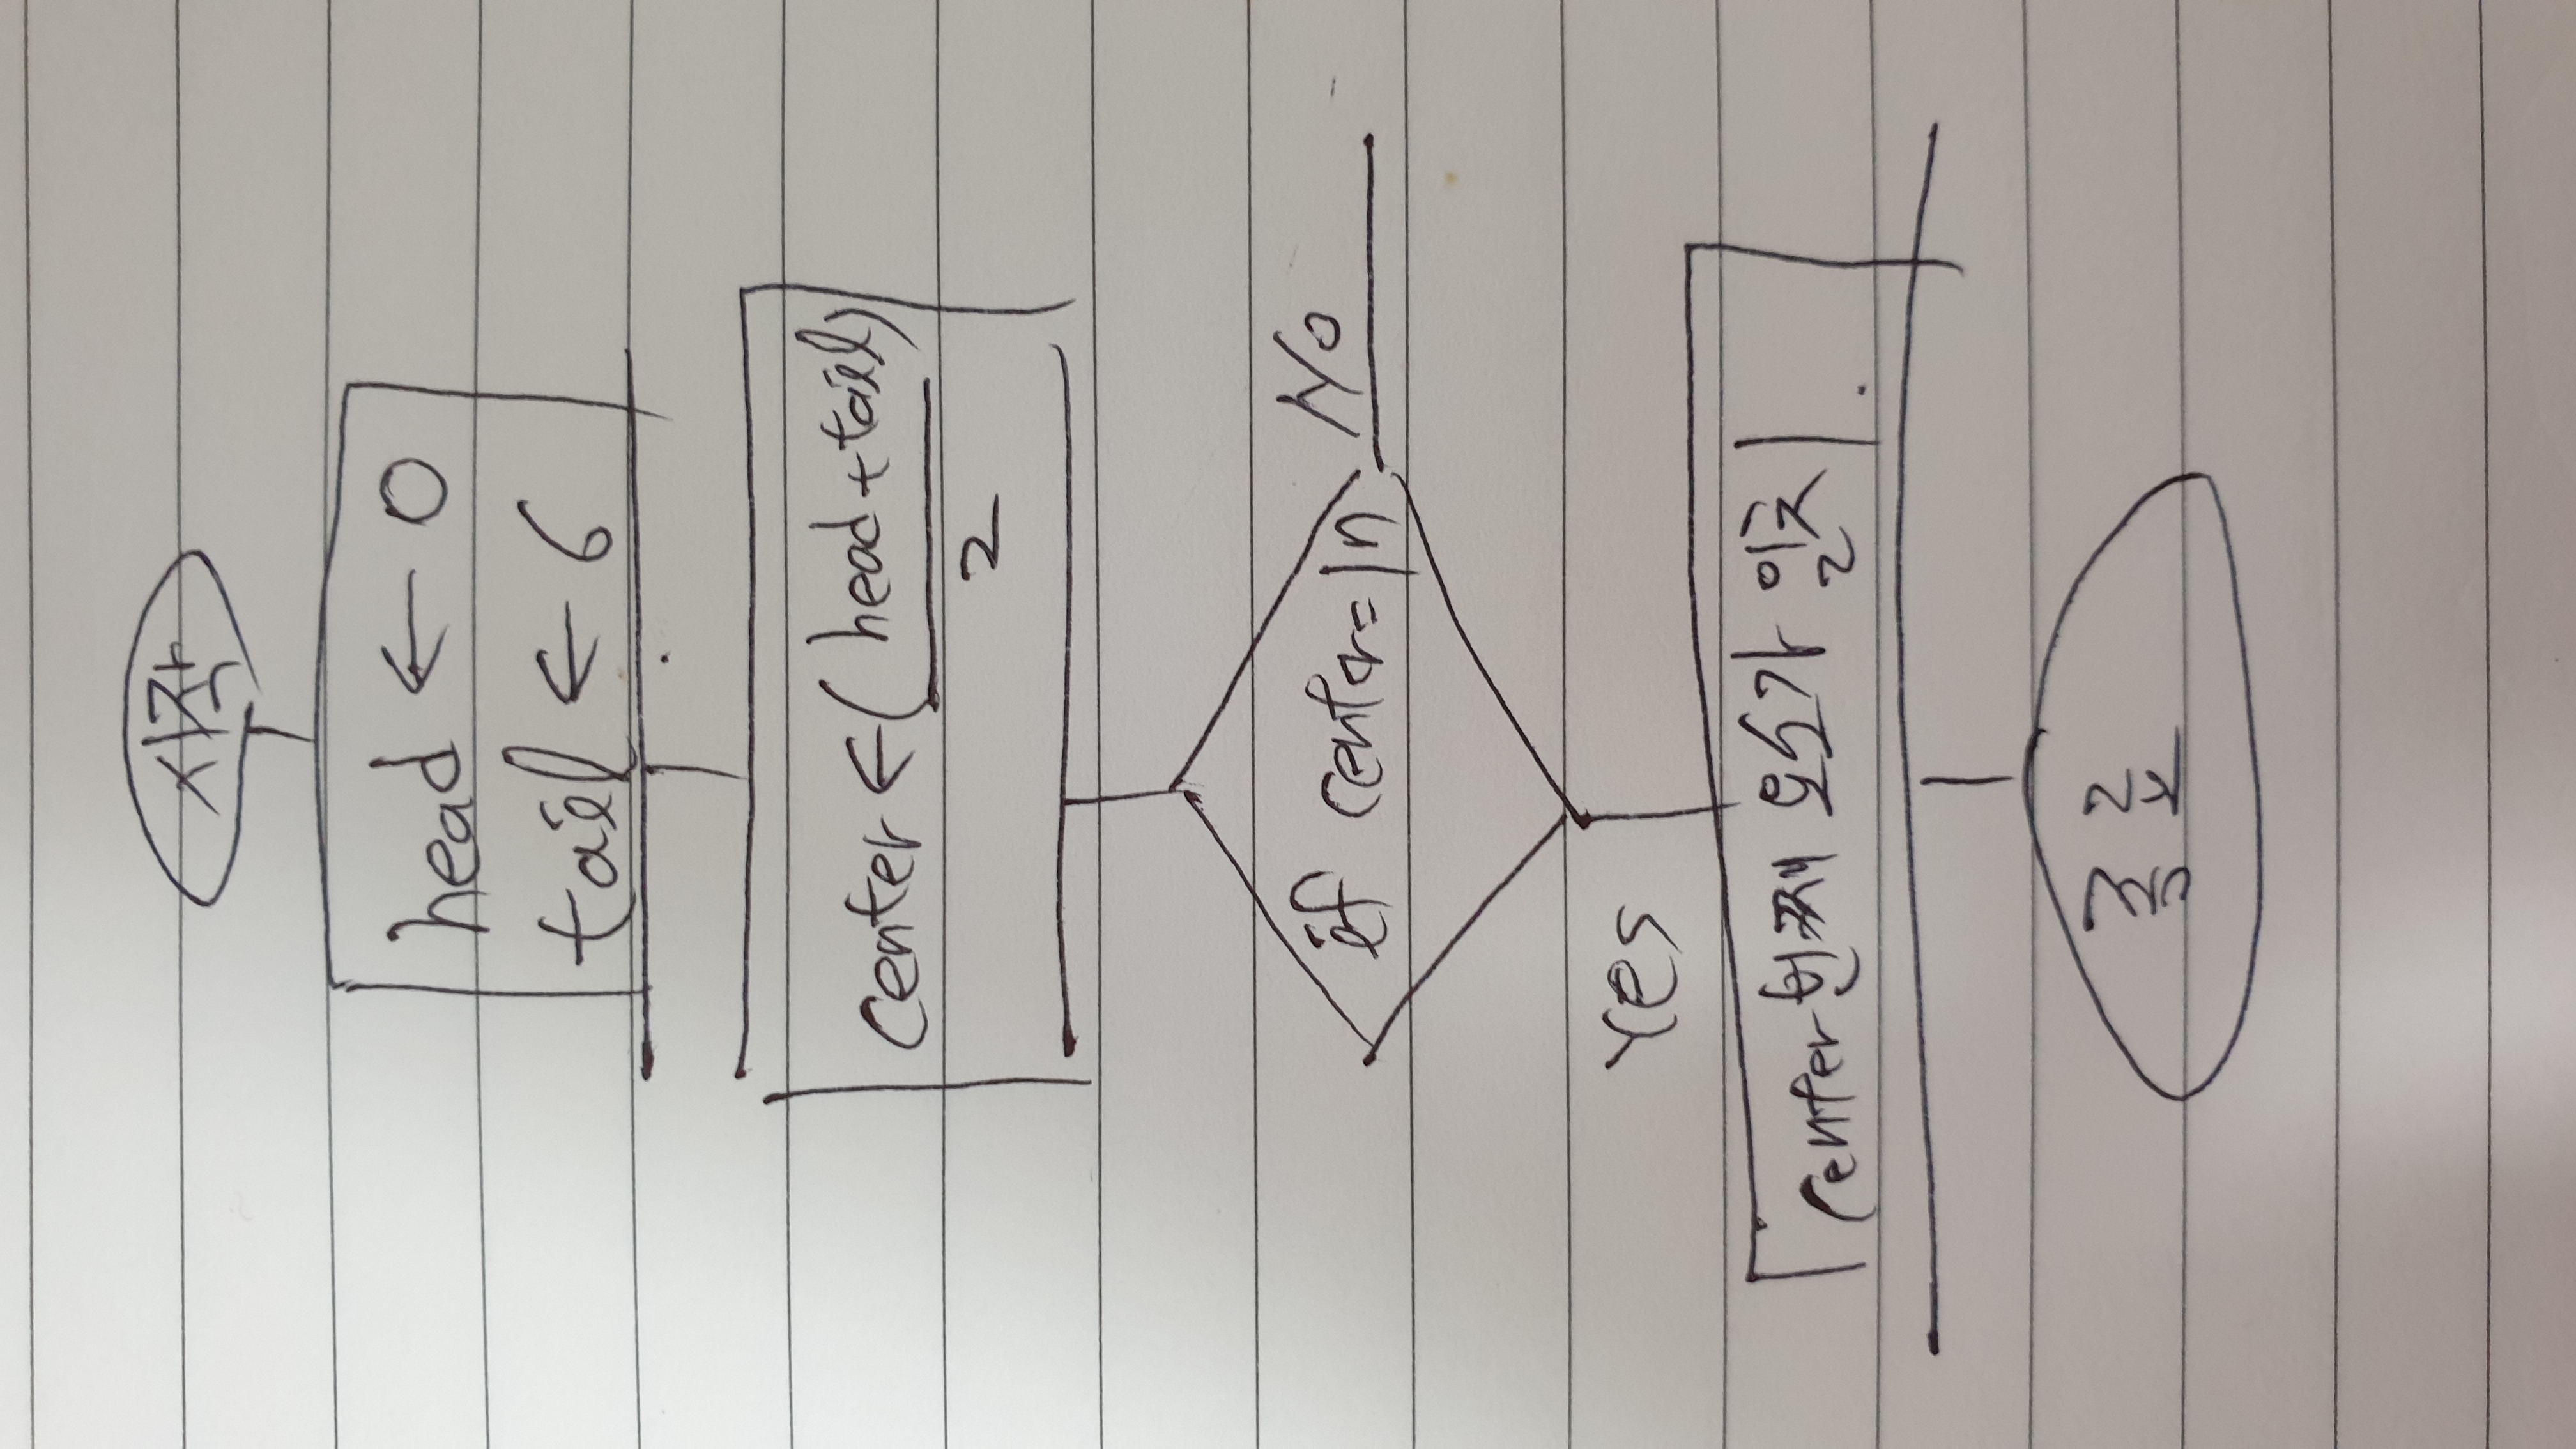 시작
head ← 0
tail ← 6
center ← (head + tail)
2
if center = 17
No
Yes
center번째 요소가 일치
종료